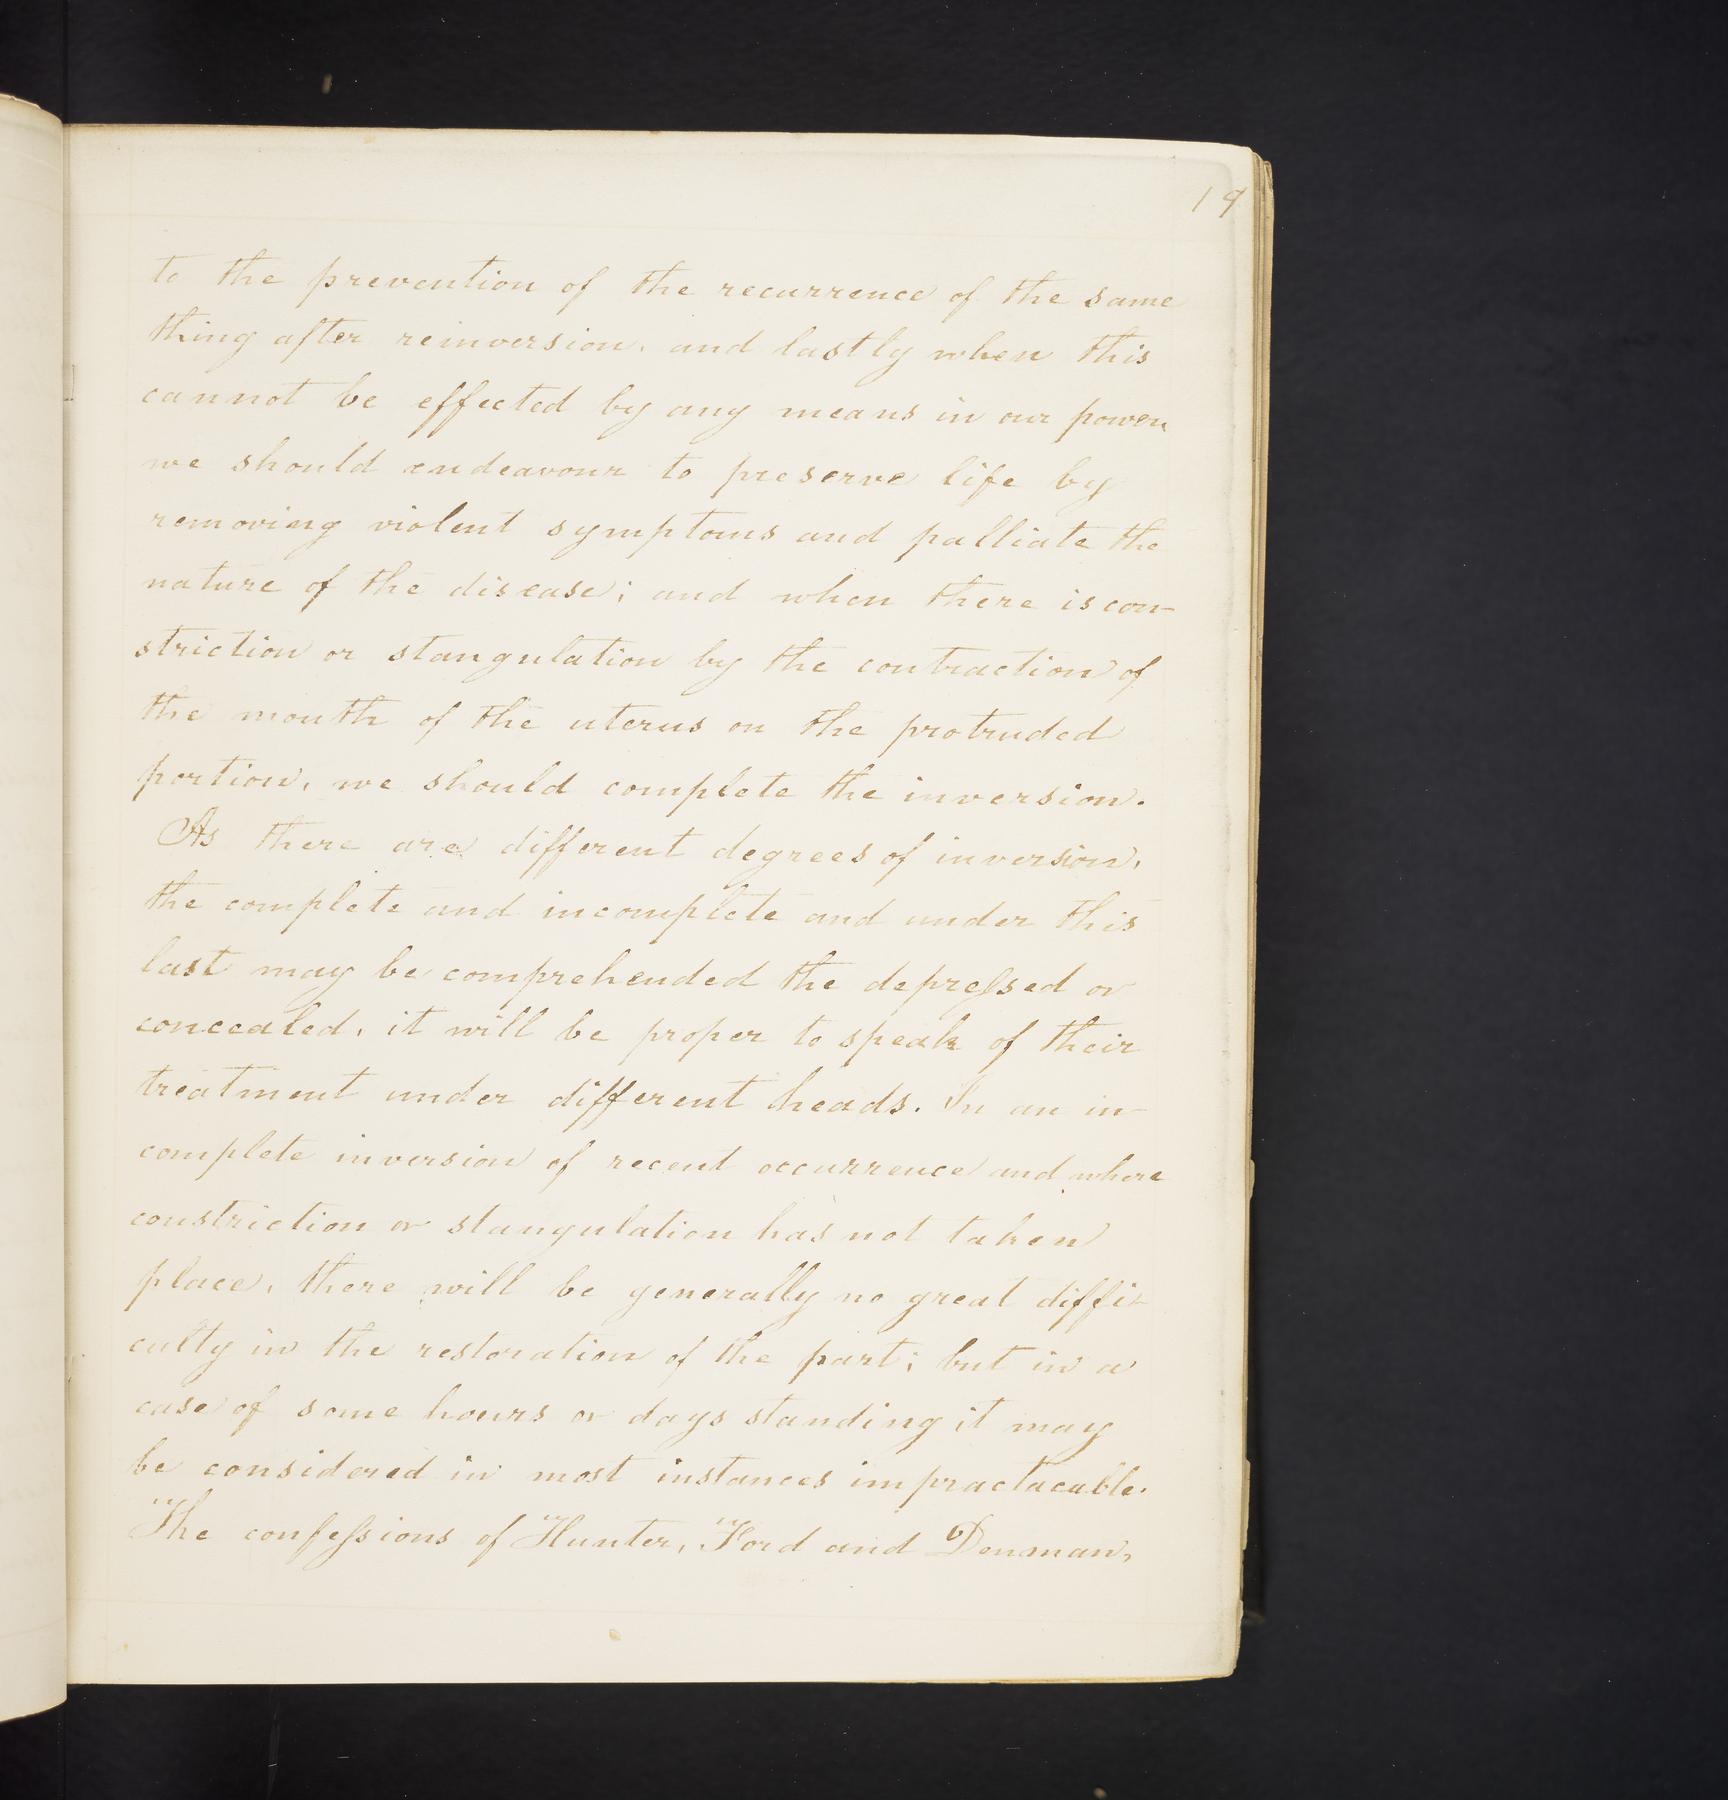 19
to the prevention of the recurrence of the same
thing after reinversion, and lastly when this
cannot be effected by any means in our power
we should endeavour to preserve life by
removing violent symptoms and palliate the
nature of the disease; and when there is con-
striction or stangulation by the contraction of
the mouth of the uterus on the protruded
portion, we should complete the inversion.
As there are different degrees of inversion,
the complete and incomplete and under this
last may be comprehended the depressed or
concealed, it will be proper to speak of their
treatment under different heads. In an in-
complete inversion of recent occurrence and where
constriction or stangulation has not taken
place, there will be generally no great diffi-
culty in the restoration of the part; but in a
case of some hours or days standing it may
be considered in most instances impractacable.
The confessions of Hunter, Ford and Denman,